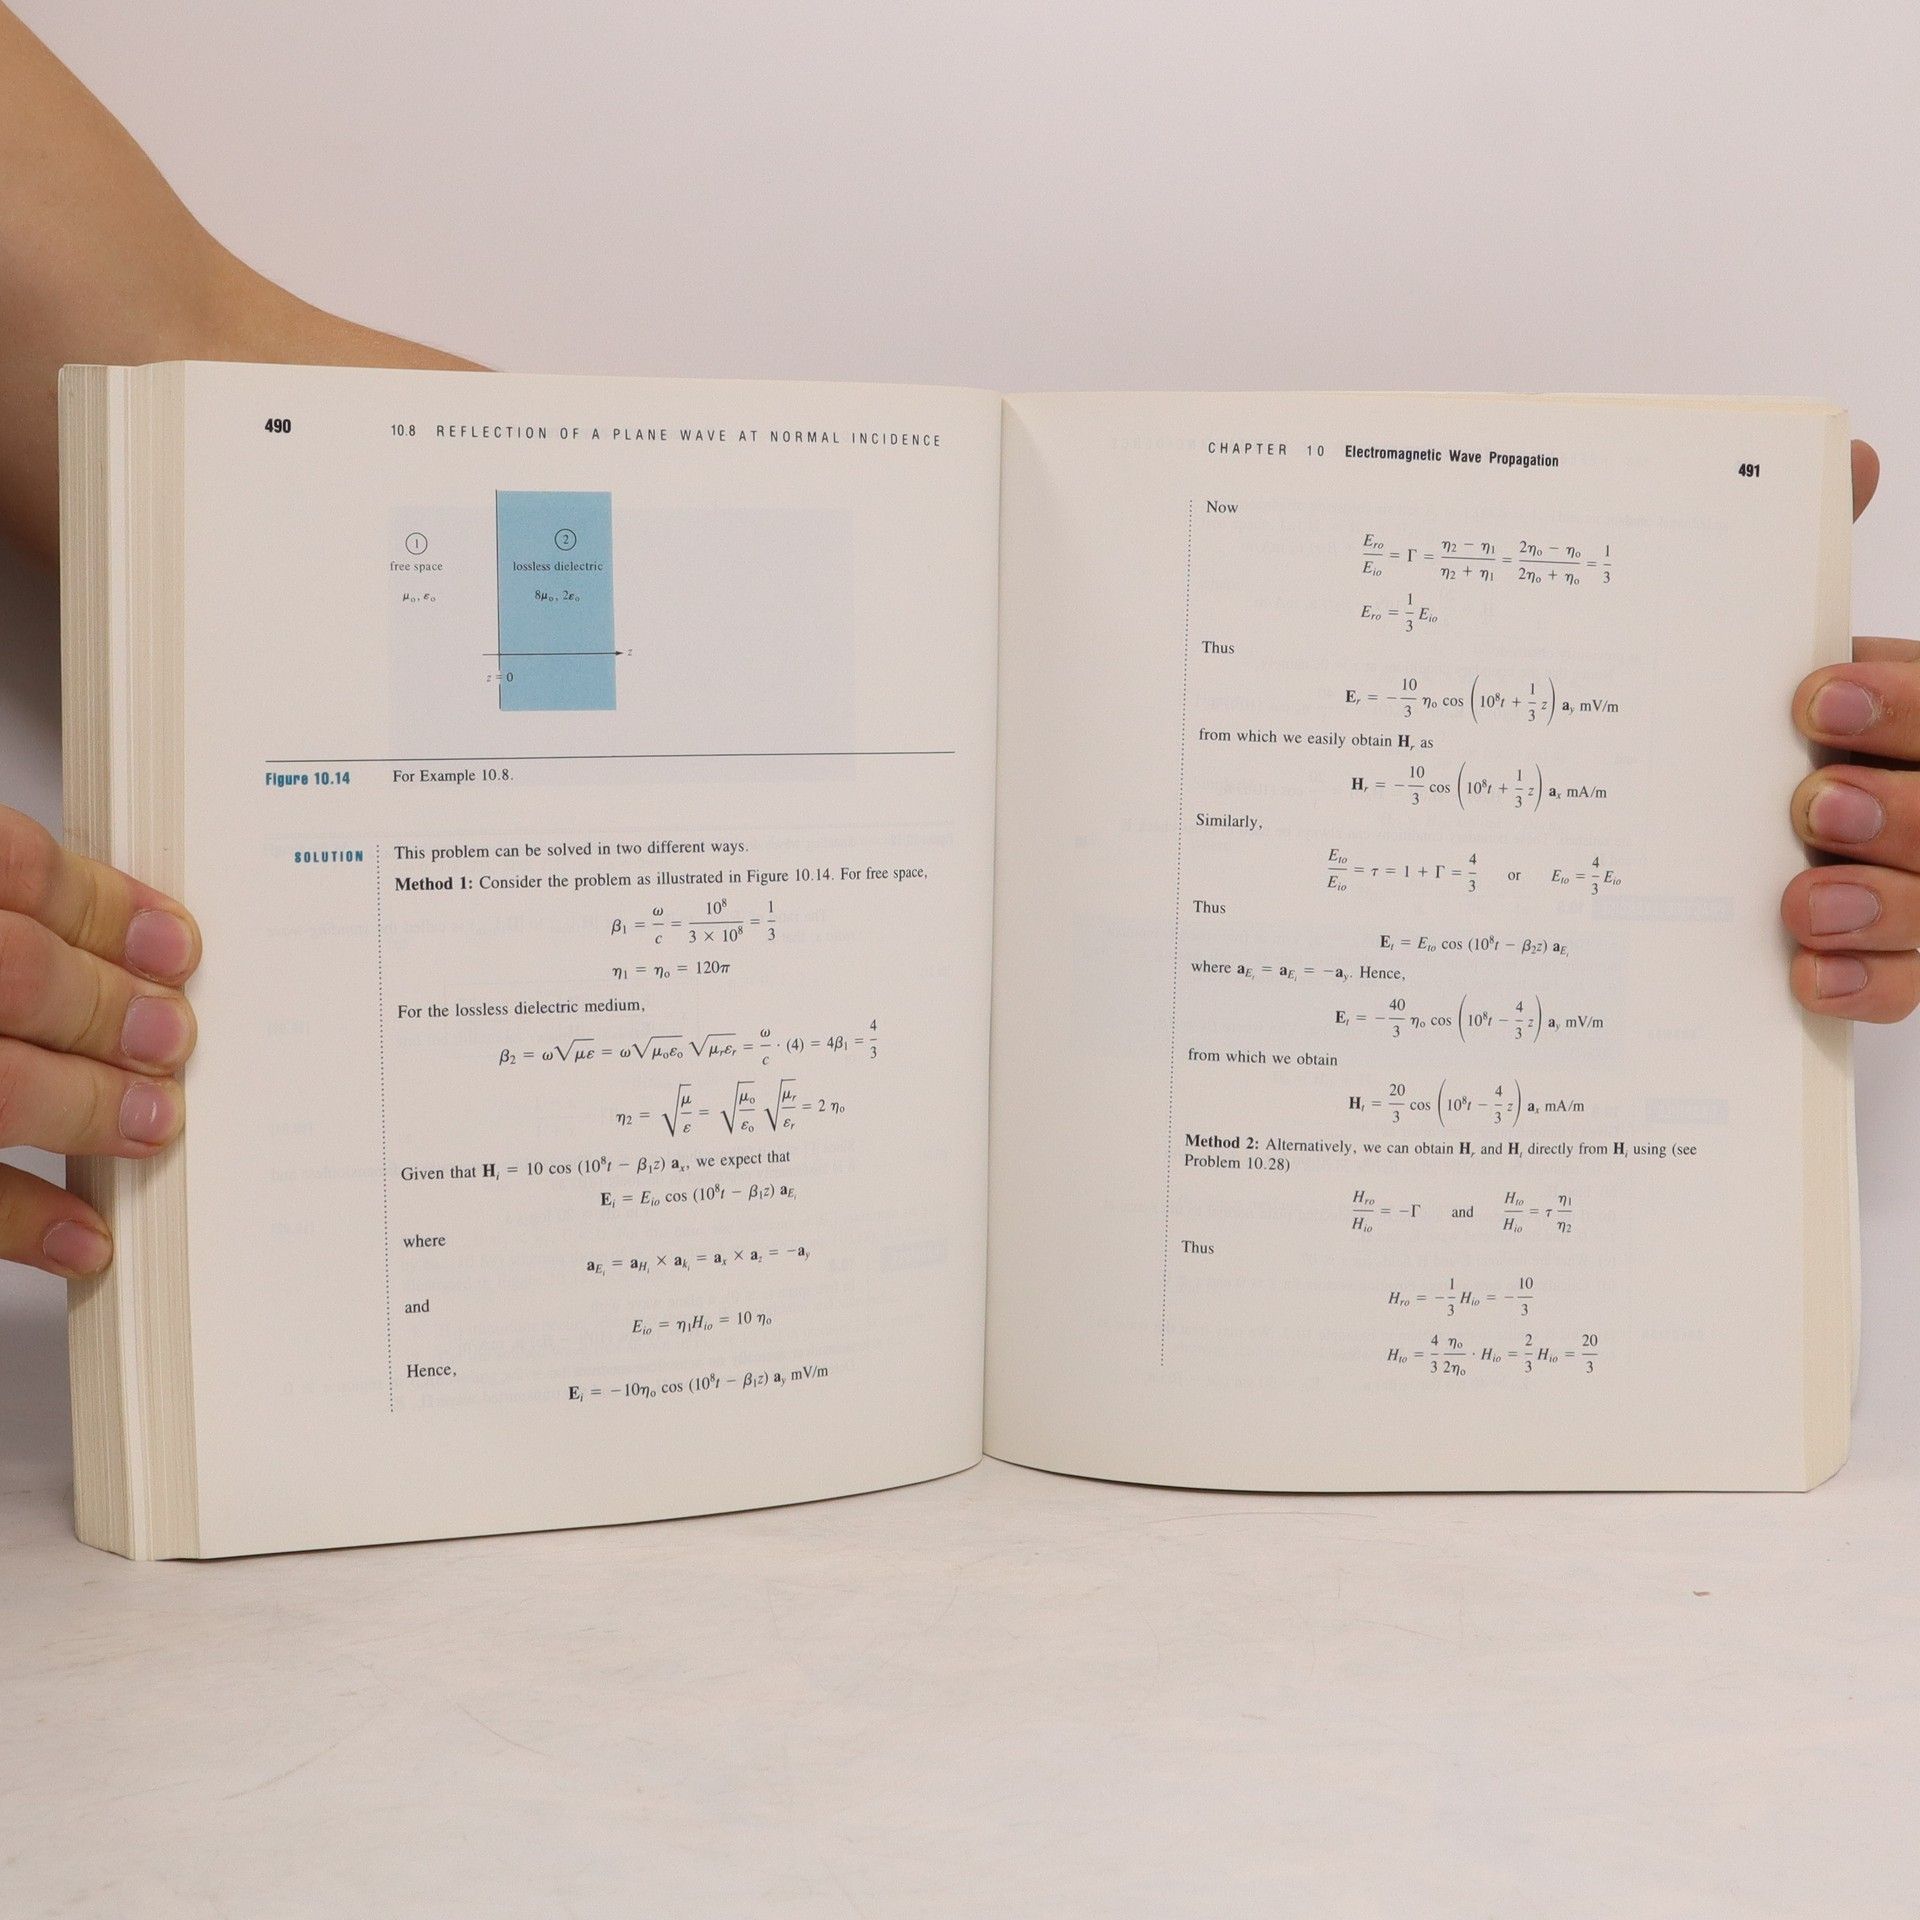 490
10.8 REFLECTION OF A PLANE WAVE AT NORMAL INCIDENCE
1
free space
μₒ, εₒ
2
lossless dielectric
8μₒ, 2εₒ
z
z = 0
Figure 10.14 For Example 10.8.
SOLUTION
This problem can be solved in two different ways.
Method 1: Consider the problem as illustrated in Figure 10.14. For free space,
β₁ = ω/c = 10⁸/(3 × 10⁸) = 1/3
η₁ = ηₒ = 120π
For the lossless dielectric medium,
β₂ = ω√(με) = ω√(μₒεₒ) √(μᵣεᵣ) = ω/c · (4) = 4β₁ = 4/3
η₂ = √(μ/ε) = √(μₒ/εₒ) √(μᵣ/εᵣ) = 2 ηₒ
Given that Hᵢ = 10 cos (10⁸t − β₁z) aₓ, we expect that
Eᵢ = Eᵢₒ cos (10⁸t − β₁z) a_Eᵢ
where
a_Eᵢ = a_Hᵢ × a_kᵢ = aₓ × a_z = −a_y
and
Eᵢₒ = η₁Hᵢₒ = 10 ηₒ
Hence,
Eᵢ = −10ηₒ cos (10⁸t − β₁z) a_y mV/m
CHAPTER 10 Electromagnetic Wave Propagation
491
Now
Eᵣₒ/Eᵢₒ = Γ = (η₂ − η₁)/(η₂ + η₁) = (2ηₒ − ηₒ)/(2ηₒ + ηₒ) = 1/3
Eᵣₒ = 1/3 Eᵢₒ
Thus
Eᵣ = −10/3 ηₒ cos (10⁸t + 1/3 z) a_y mV/m
from which we easily obtain Hᵣ as
Hᵣ = −10/3 cos (10⁸t + 1/3 z) aₓ mA/m
Similarly,
Eₜₒ/Eᵢₒ = τ = 1 + Γ = 4/3 or Eₜₒ = 4/3 Eᵢₒ
Thus
Eₜ = Eₜₒ cos (10⁸t − β₂z) a_Eₜ
where a_Eₜ = a_Eᵢ = −a_y. Hence,
Eₜ = −40/3 ηₒ cos (10⁸t − 4/3 z) a_y mV/m
from which we obtain
Hₜ = 20/3 cos (10⁸t − 4/3 z) aₓ mA/m
Method 2: Alternatively, we can obtain Hᵣ and Hₜ directly from Hᵢ using (see
Problem 10.28)
Hᵣₒ/Hᵢₒ = −Γ and Hₜₒ/Hᵢₒ = τ η₁/η₂
Thus
Hᵣₒ = −1/3 Hᵢₒ = −10/3
Hₜₒ = 4/3 ηₒ/2ηₒ · Hᵢₒ = 2/3 Hᵢₒ = 20/3